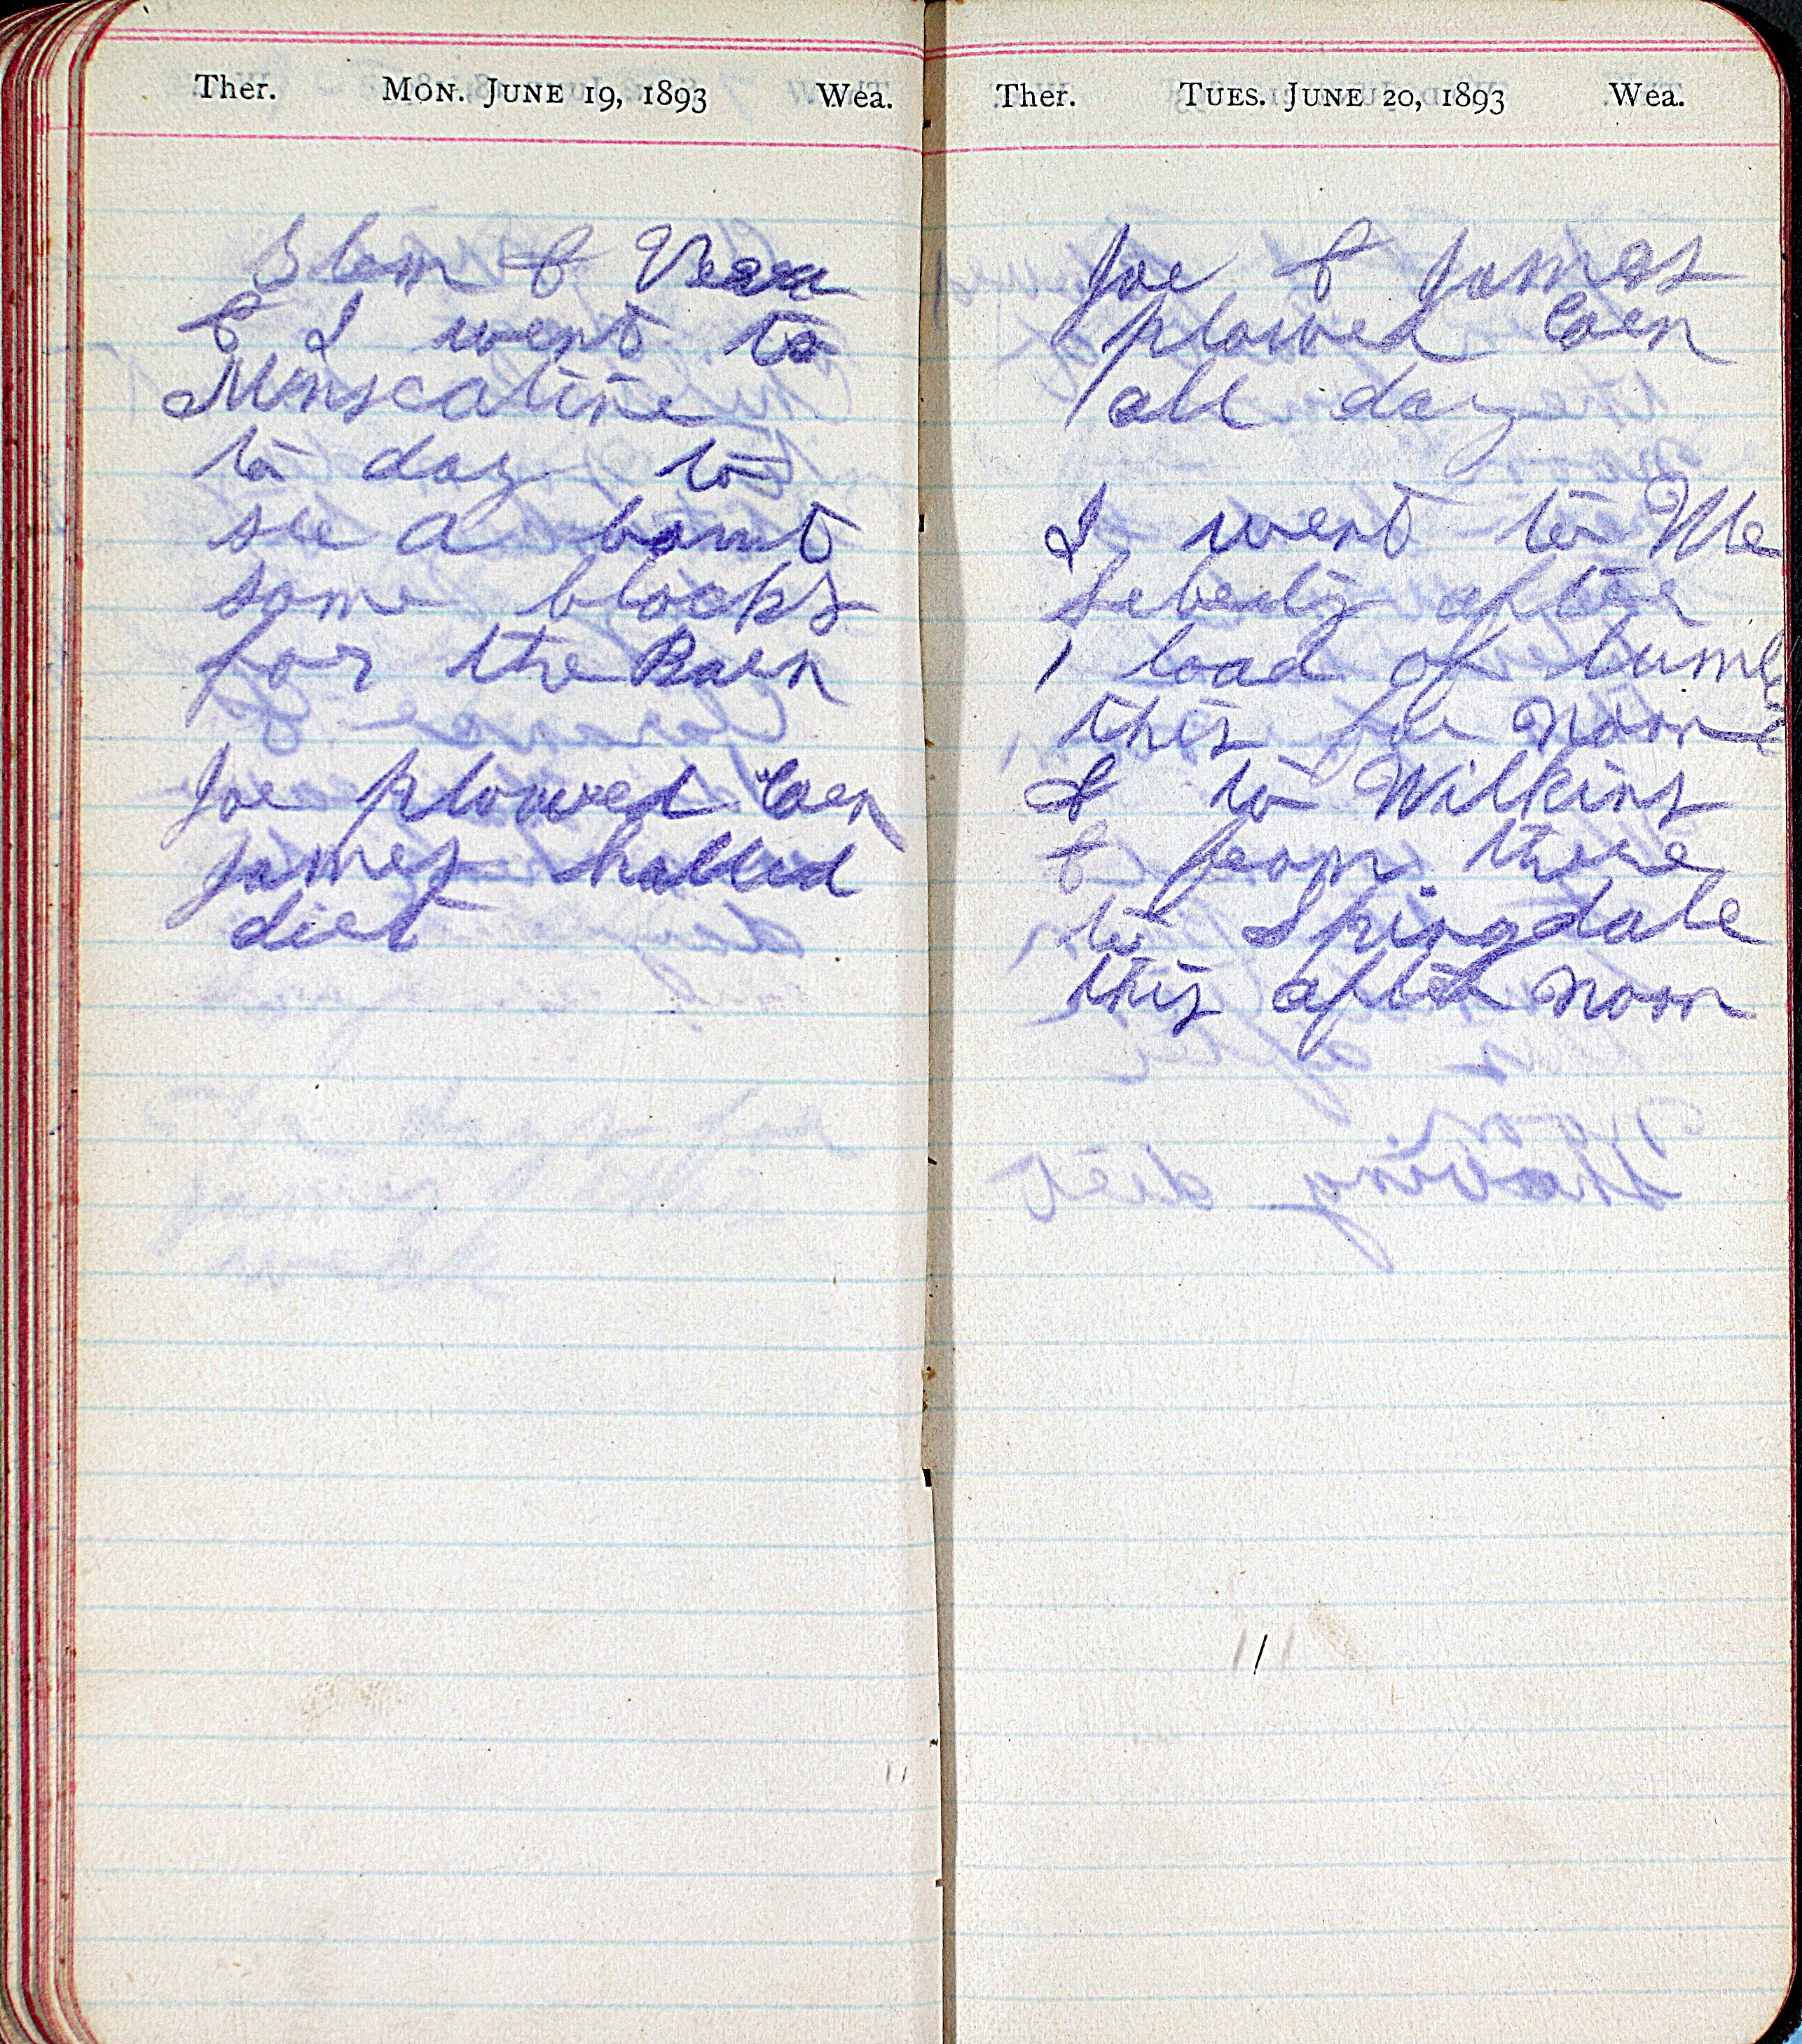 Ther. MON. JUNE 19, 1893 Wea.
Clem & Vera
& I went to
Muscatine
to day to
see a bout
some blocks
for the Barn
Joe plowed Corn
James halled
dirt
Ther. TUES. JUNE 20, 1893 Wea.
Joe & James
plowed Corn
all day
I went to We
Liberty after
1 load of lumber
this for noon
& to Wilkins
& from there
to Springdale
this after noon